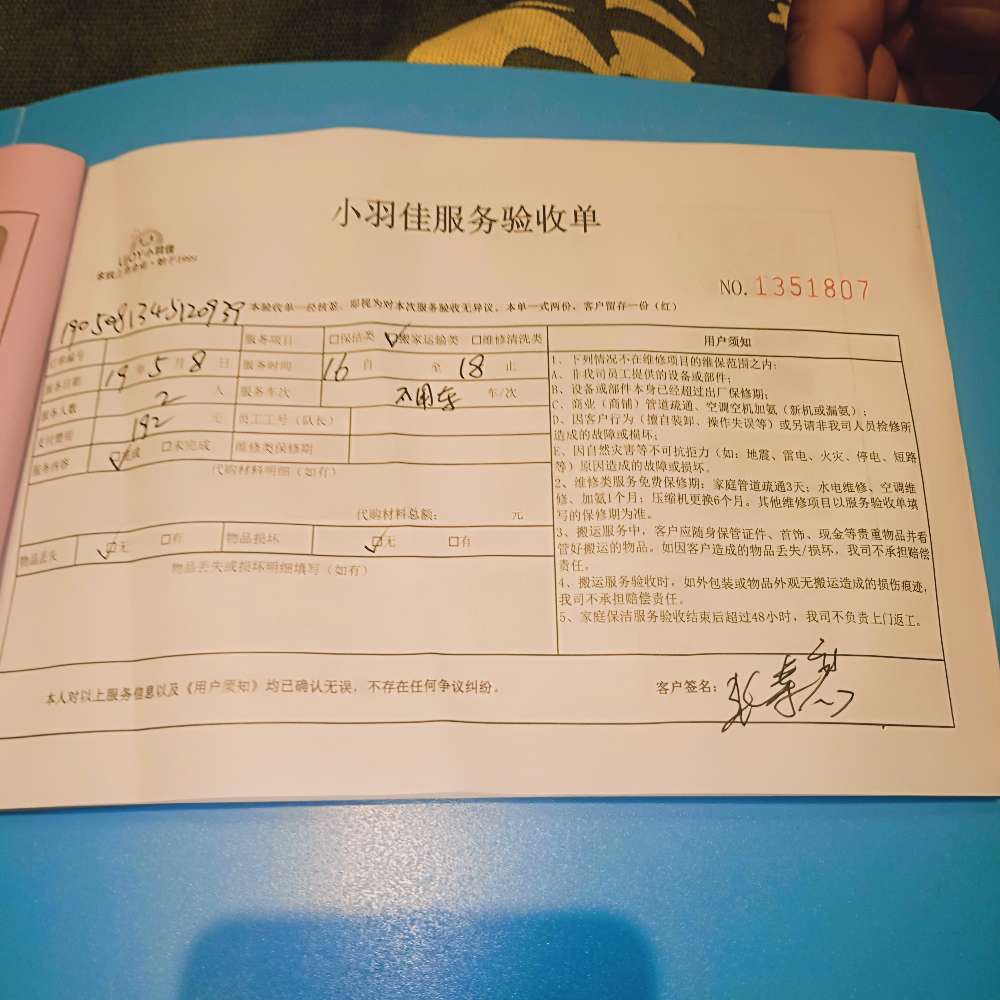 小羽佳服务验收单
小羽佳
NO.1351807
1905081345120939
本验收单一经核签，即视为对本次服务验收无异议。本单一式两份，客户留存一份（红）
订单编号 服务项目 □保洁类 ☑搬家运输类 □维修清洗类
服务日期 19 年 5 月 8 日 服务时间 16 自 至 18 止
服务人数 2 人 服务车次 不用车 车/次
支付费用 192 元 员工工号（队长）
服务内容 ☑完成 □未完成 维修类保修期
代购材料明细（如有）
代购材料总额： 元
物品丢失 ☑无 □有 物品损坏 ☑无 □有
物品丢失或损坏明细填写（如有）
用户须知
1、下列情况不在维修项目的维保范围之内：
A、非我司员工提供的设备或部件；
B、设备或部件本身已经超过出厂保修期；
C、商业（商铺）管道疏通、空调空机加氨（新机或漏氨）；
D、因客户行为（擅自装卸、操作失误等）或另请非我司人员检修所
造成的故障或损坏；
E、因自然灾害等不可抗拒力（如：地震、雷电、火灾、停电、短路
等）原因造成的故障或损坏。
2、维修类服务免费保修期：家庭管道疏通3天；水电维修、空调维
修、加氨1个月；压缩机更换6个月。其他维修项目以服务验收单填
写的保修期为准。
3、搬运服务中，客户应随身保管证件、首饰、现金等贵重物品并看
管好搬运的物品。如因客户造成的物品丢失/损坏，我司不承担赔偿
责任。
4、搬运服务验收时，如外包装或物品外观无搬运造成的损伤痕迹，
我司不承担赔偿责任。
5、家庭保洁服务验收结束后超过48小时，我司不负责上门返工。
本人对以上服务信息以及《用户须知》均已确认无误，不存在任何争议纠纷。
客户签名：